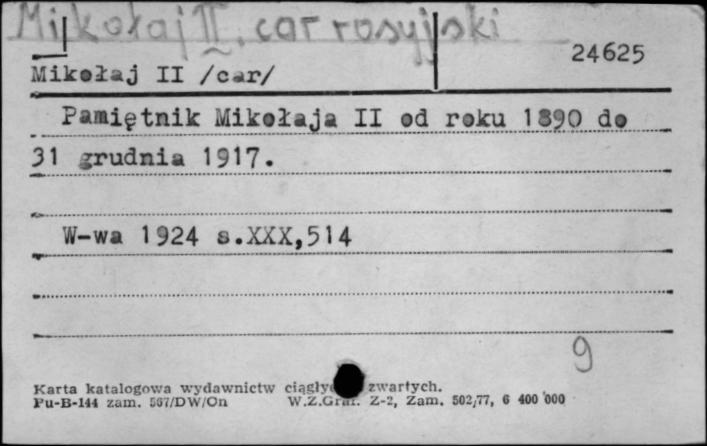 Mikołaj II, car rosyjski
24625
Mikołaj II /car/
Pamiętnik Mikołaja II od roku 1890 do
31 grudnia 1917.
W-wa 1924 s.XXX,514
9
Karta katalogowa wydawnictw zwartych.
Pu-B-144 zam. 567/DW/On W.Z.Graf. Z-2, Zam. 502/77, 6 400 000